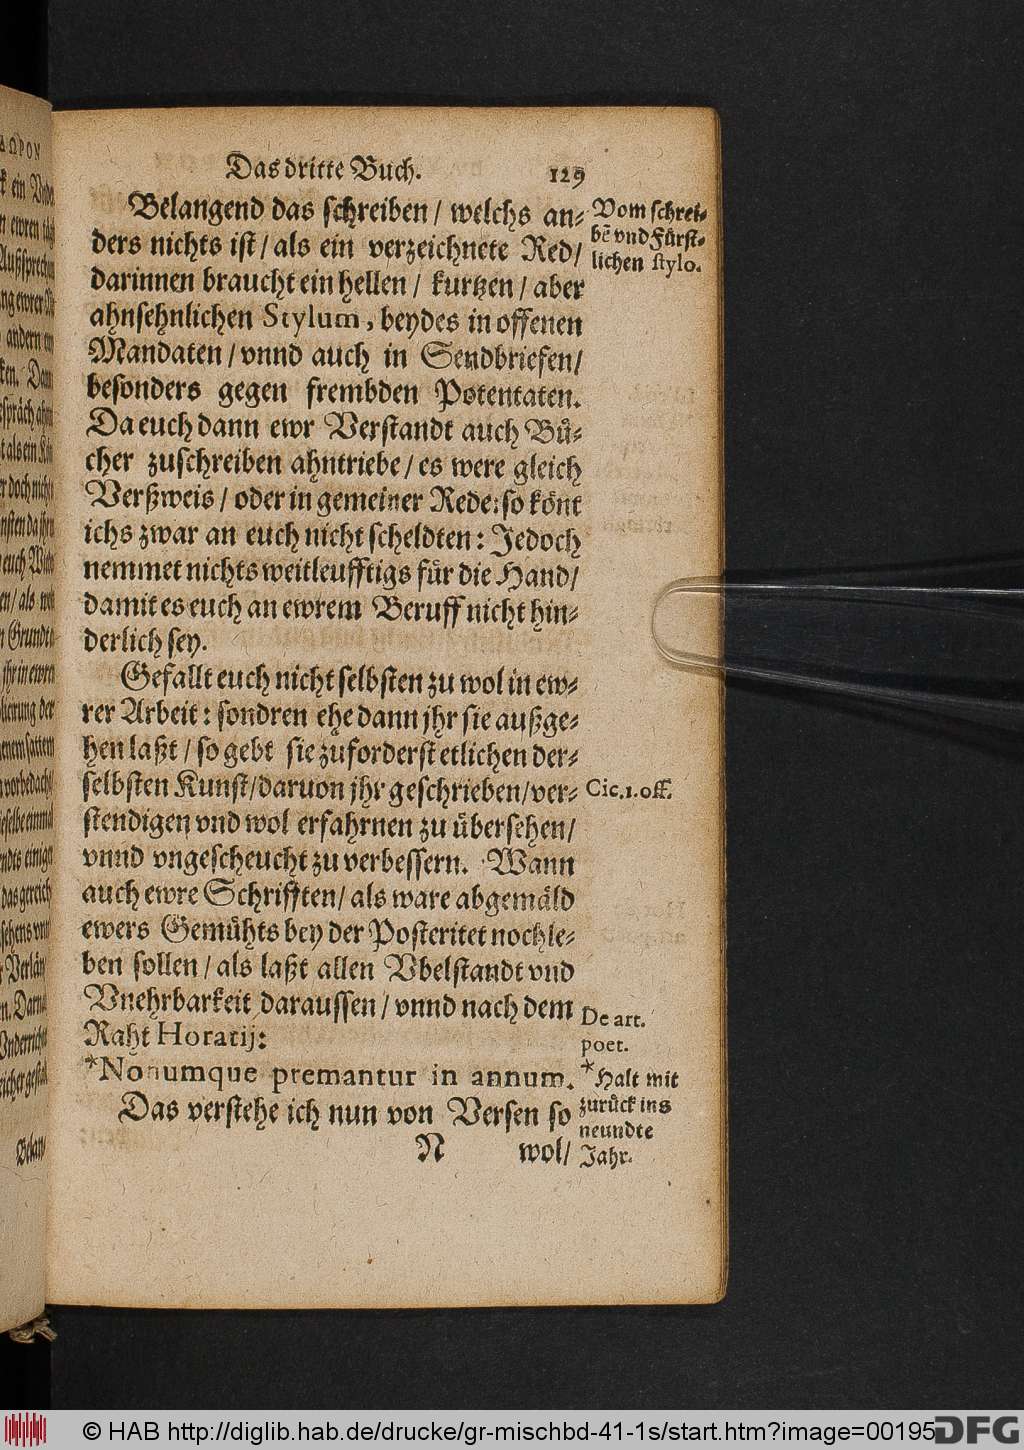 Das dritte Buch. 129
Belangend das schreiben / welchs an-
ders nichts ist / als ein verzeichnete Red /
darinnen braucht ein hellen / kurtzen / aber
ahnsehnlichen Stylum, beydes in offenen
Mandaten / vnnd auch in Sendbriefen /
besonders gegen frembden Potentaten.
Da euch dann ewr Verstandt auch Bü-
cher zuschreiben ahntriebe / es were gleich
Verßweis / oder in gemeiner Rede: so könt
ichs zwar an euch nicht scheldten: Jedoch
nemmet nichts weitleufftigs für die Hand /
damit es euch an ewrem Beruff nicht hin-
derlich sey.
Gefallt euch nicht selbsten zu wol in ew-
rer Arbeit: sondren ehe dann jhr sie außge-
hen laßt / so gebt sie zuforderst etlichen der-
selbsten Kunst / daruon jhr geschrieben / ver-
stendigen vnd wol erfahrnen zu übersehen /
vnnd vngescheucht zu verbessern. Wann
auch ewre Schrifften / als ware abgemäld
ewers Gemühts bey der Posteritet noch le-
ben sollen / als laßt allen Vbelstandt vnd
Vnehrbarkeit daraussen / vnnd nach dem
Raht Horatij:
*Nonumque premantur in annum.
Das verstehe ich nun von Versen so
N wol /
Vom schrei-
bē vnd Fürst-
lichen stylo.
Cic. 1. off.
De art.
poet.
*Halt mit
zurück ins
neundte
Jahr.
ΔΩΡΟΝ
Belan-
© HAB http://diglib.hab.de/drucke/gr-mischbd-41-1s/start.htm?image=00195
DFG